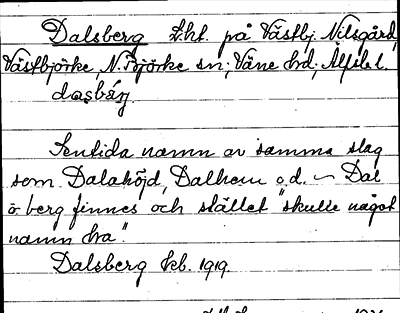 Dalsberg Lht. på Västbj. Nilsgård,
Västbjörke, N. Björke sn; Väne hd; Älfsb. l.
dasbärj
Sentida namn av samma slag
som Dalahöjd, Dalhem o.d. – Dal
o berg finnes och stället "skulle något
namn ha".
Dalsberg kb. 1919.